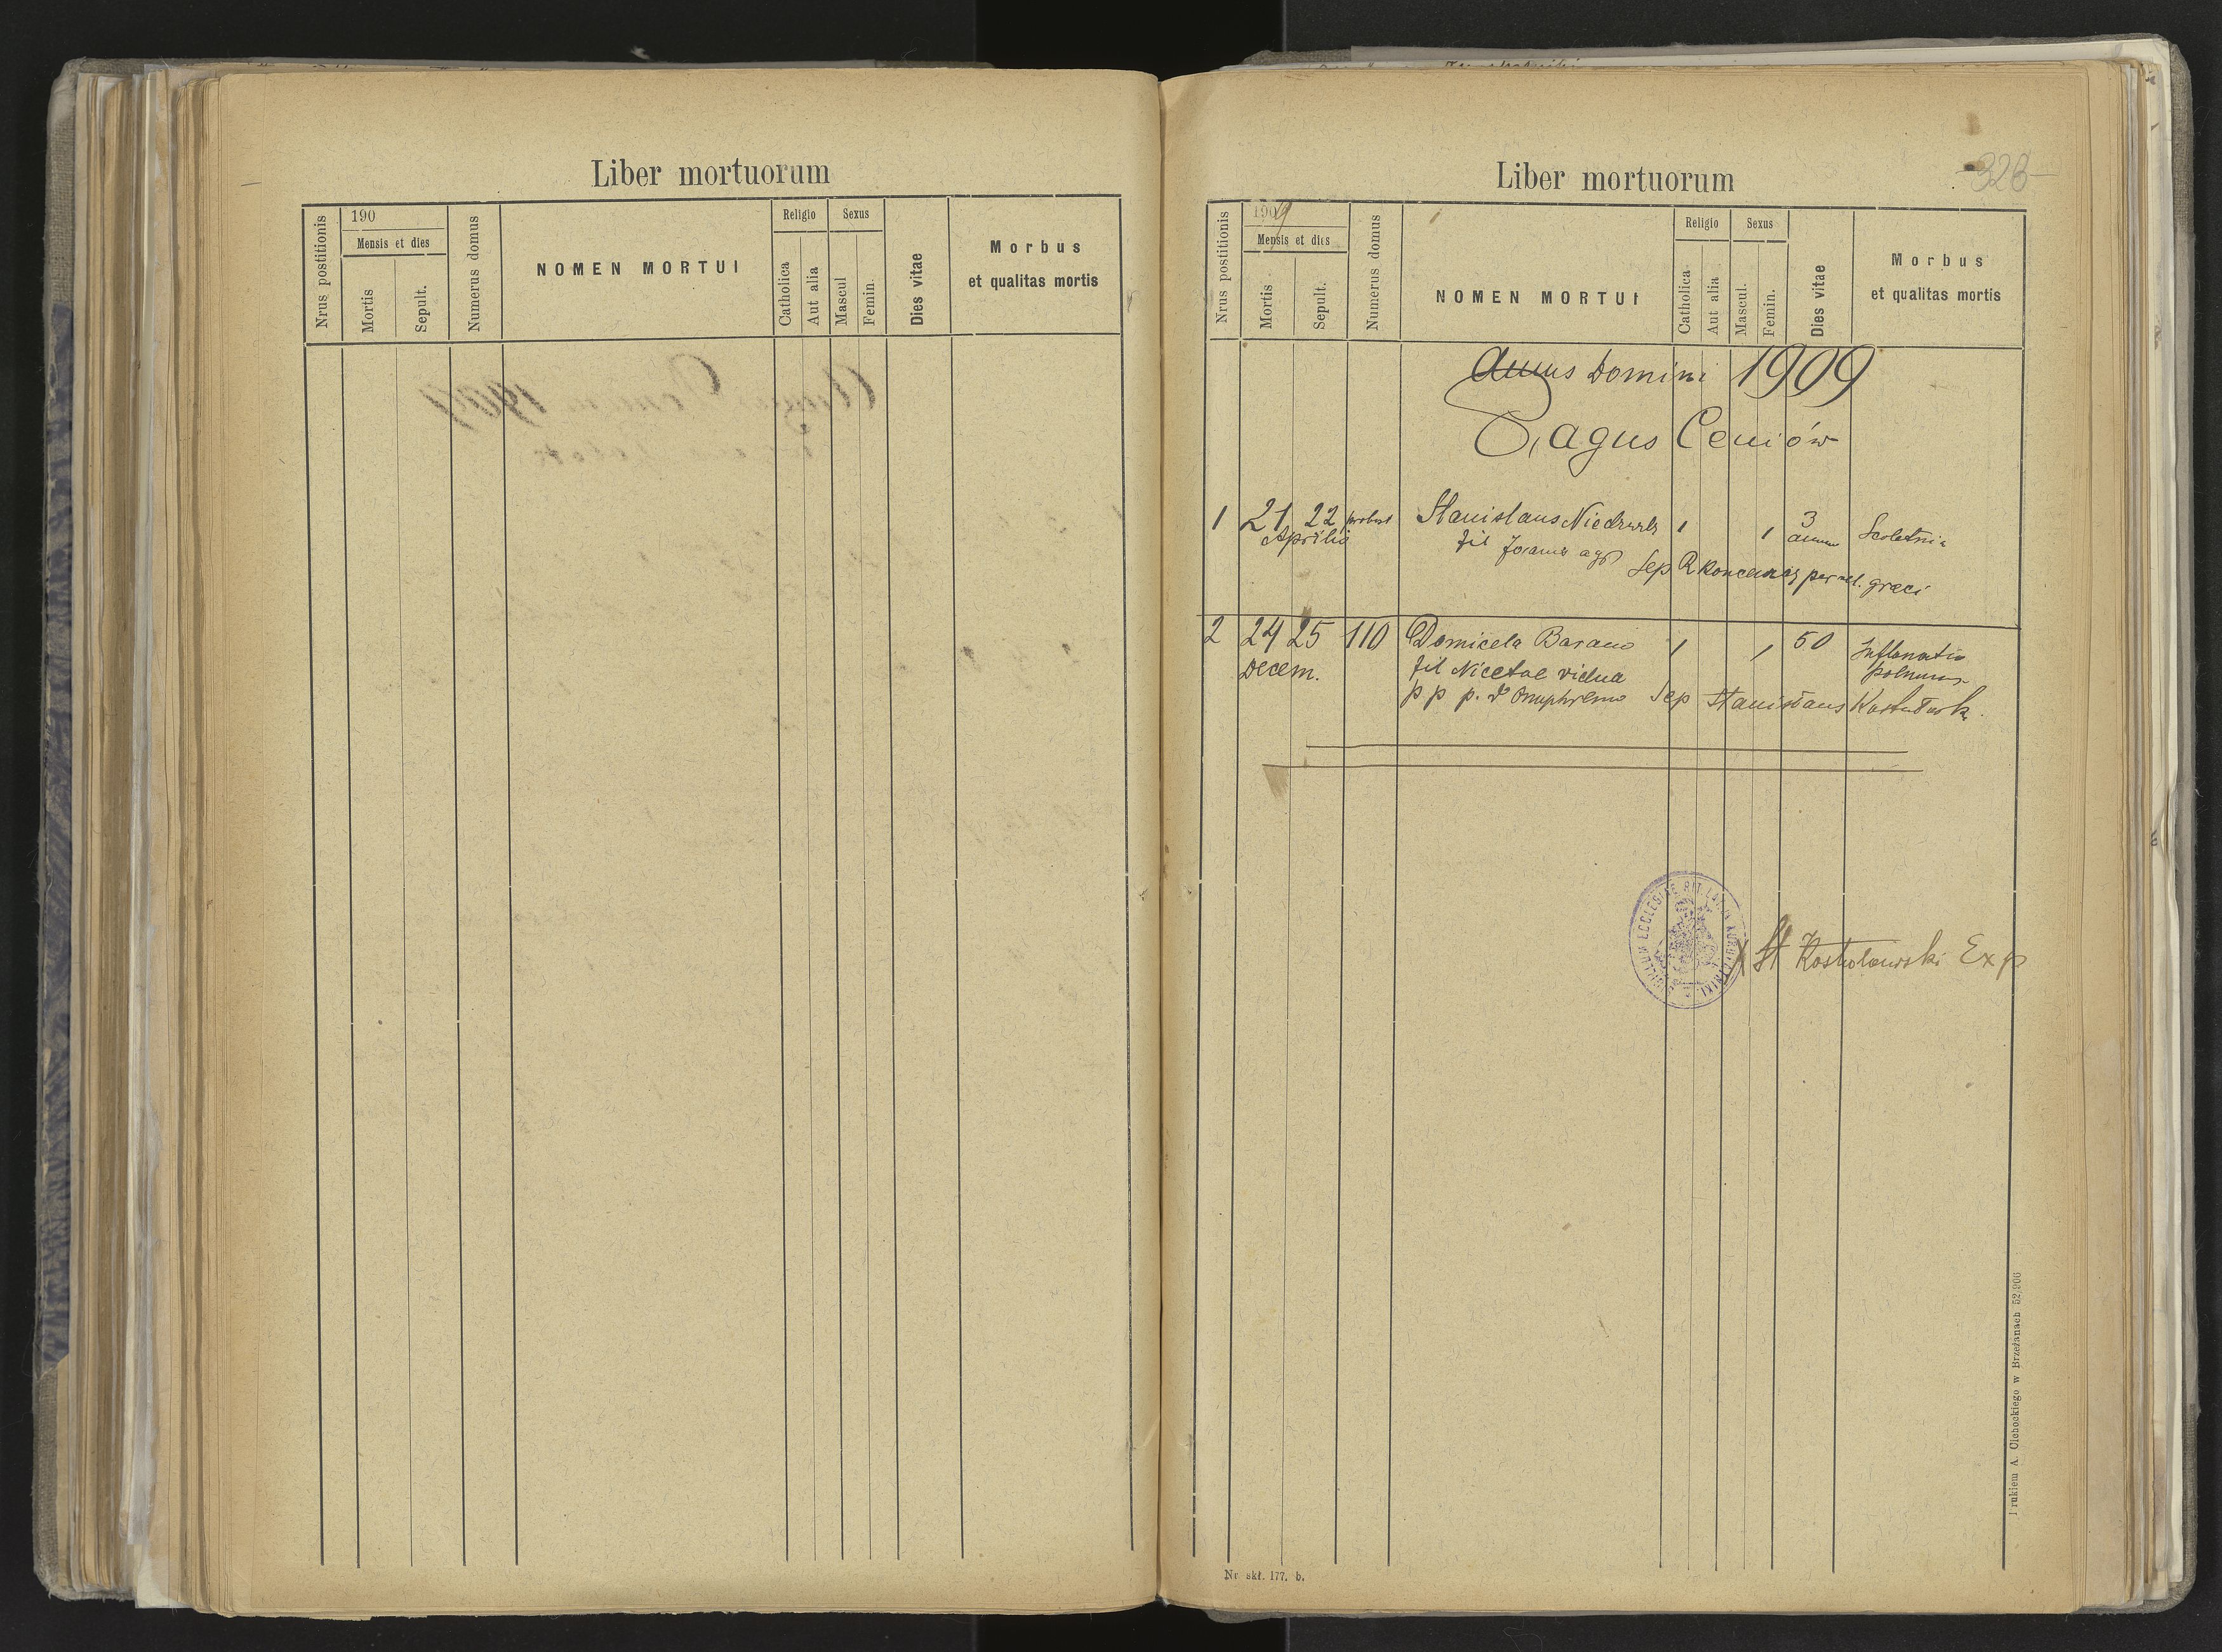 Liber mortuorum
Nrus postitionis
190
Mensis et dies
Mortis
Sepult.
Numerus domus
NOMEN MORTUI
Religio
Catholica
Aut alia
Sexus
Mascul
Femin.
Dies vitae
Morbus
et qualitas mortis
Liber mortuorum
328
Nrus postitionis
1909
Mensis et dies
Mortis
Sepult.
Numerus domus
NOMEN MORTUI
Religio
Catholica
Aut alia
Sexus
Mascul.
Femin.
Dies vitae
Morbus
et qualitas mortis
Annus Domini 1909
Pagus Ceniów
1 21 22 Stanislaus 1 1 3
Aprilis fil Joannis agr Sep
graeci
2 24 25 110 Domicela Baran 1 1 50 Inflamatio
Decem. fil Nicetae vidua
p p p. d Onuphrium Sep Stanisłaus
St Kostołowski Exp
Drukiem A. Cichockiego w Brzeżanach 52/906
Nr skł. 177. b.